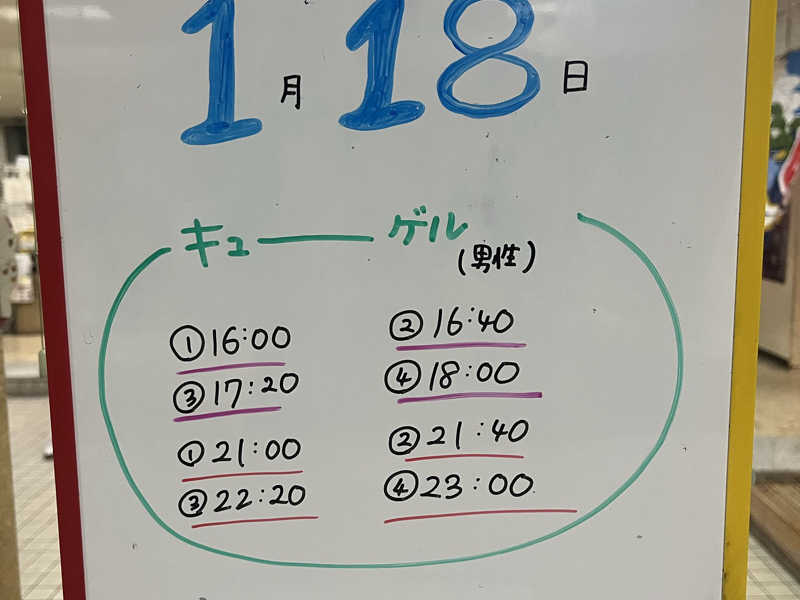 1月18日
キューゲル
(男性)
①16:00 ②16:40
③17:20 ④18:00
①21:00 ②21:40
③22:20 ④23:00